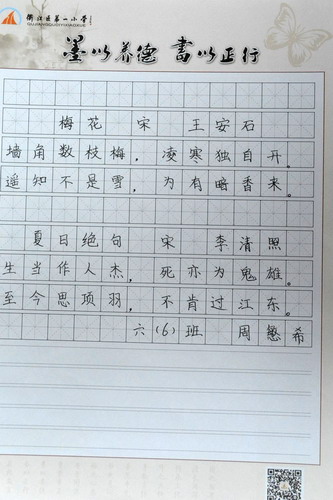 衢江区第一小学
QUJIANGQUDIYIXIAOXUE
墨以养德 书以正行
梅花 宋 王安石
墙角数枝梅，凌寒独自开。
遥知不是雪，为有暗香来。
夏日绝句 宋 李清照
生当作人杰，死亦为鬼雄。
至今思项羽，不肯过江东。
六(6)班 周愍希